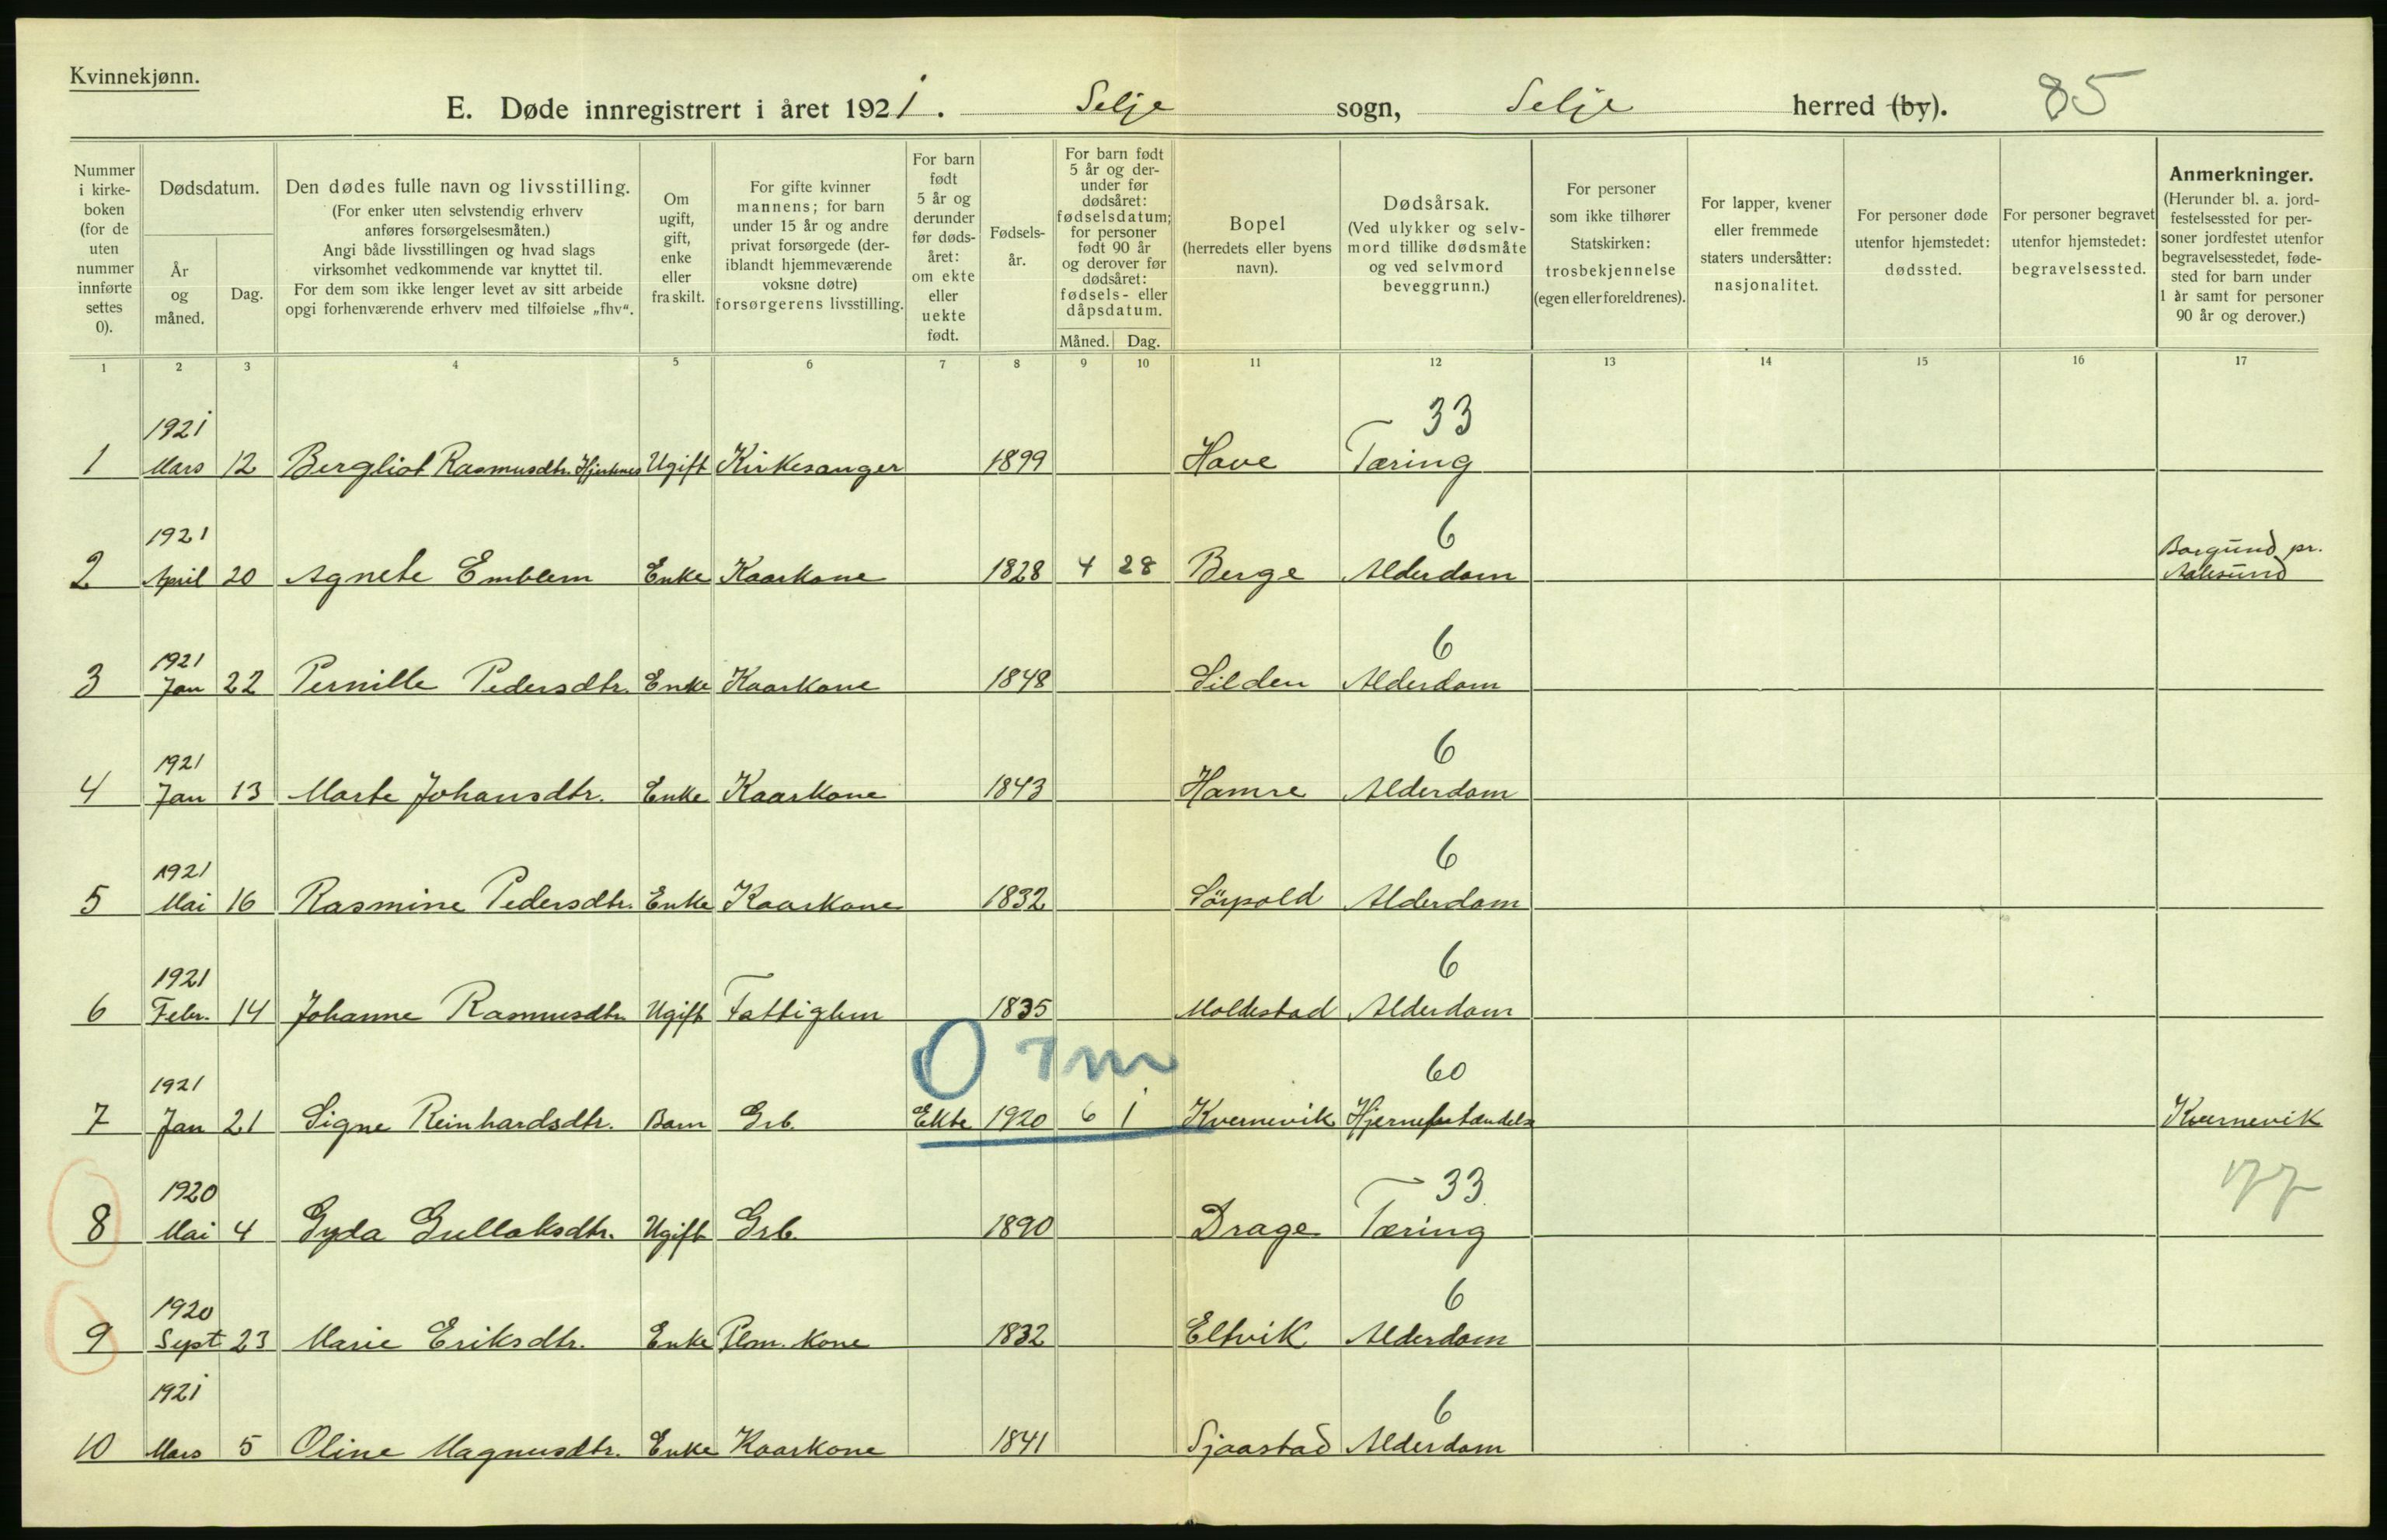 Kvinnekjønn.
E. Døde innregistrert i året 1921. Selje sogn, Selje herred (by). 85
Nummer i kirke- boken (for de uten nummer innførte settes 0).
Dødsdatum.
År og måned.
Dag.
Den dødes fulle navn og livsstilling.
(For enker uten selvstendig erhverv
anføres forsørgelsesmåten.)
Angi både livsstillingen og hvad slags
virksomhet vedkommende var knyttet til.
For dem som ikke lenger levet av sitt arbeide
opgi forhenværende erhverv med tilføielse „fhv“.
Om ugift, gift, enke eller fraskilt.
For gifte kvinner
mannens; for barn
under 15 år og andre
privat forsørgede (der-
iblandt hjemmeværende
voksne døtre)
forsørgerens livsstilling.
For barn født 5 år og derunder før døds- året: om ekte eller uekte født.
Fødsels- år.
For barn født
5 år og der-
under før
dødsåret:
fødselsdatum;
for personer
født 90 år
og derover før
dødsåret:
fødsels- eller
dåpsdatum.
Måned. Dag.
Bopel
(herredets eller byens
navn).
Dødsårsak.
(Ved ulykker og selv-
mord tillike dødsmåte
og ved selvmord
beveggrunn.)
For personer
som ikke tilhører
Statskirken:
trosbekjennelse
(egen eller foreldrenes).
For lapper, kvener
eller fremmede
staters undersåtter:
nasjonalitet.
For personer døde
utenfor hjemstedet:
dødssted.
For personer begravet
utenfor hjemstedet:
begravelsessted.
Anmerkninger.
(Herunder bl. a. jord-
festelsessted for per-
soner jordfestet utenfor
begravelsesstedet, føde-
sted for barn under
1 år samt for personer
90 år og derover.)
1 2 3 4 5 6 7 8 9 10 11 12 13 14 15 16 17
1921 33
1 Mars 12 Bergliot Rasmusdtr. Hjertenes Ugift Kirkesanger 1899 Hove Tæring
1921 6 Borgund pr.
2 April 20 Agnete Emblem Enke Kaarkone 1828 4 28 Berge Alderdom Aalesund
1921 6
3 Jan 22 Pernille Pedersdtr. Enke Kaarkone 1848 Silden Alderdom
1921 6
4 Jan 13 Marte Johansdtr. Enke Kaarkone 1843 Hamre Alderdom
1921 6
5 Mai 16 Rasmine Pedersdtr. Enke Kaarkone 1832 Sörpold Alderdom
1921 6
6 Febr. 14 Johanne Rasmusdtr. Ugift Fattiglem 1835 Moldestad Alderdom
0 7 m
1921 60
7 Jan 21 Signe Reinhardsdtr. Barn Grb. Ekte 1920 6 1 Kvernevik Hjernebetændelse Kvernevik
1920 33 177
8 Mai 4 Gyda Gullaksdtr. Ugift Grb. 1890 Drage Tæring
1920 6
9 Sept 23 Marie Eriksdtr. Enke Plm. kone 1832 Eltvik Alderdom
1921 6
10 Mars 5 Oline Magnusdtr. Enke Kaarkone 1841 Sjaastad Alderdom